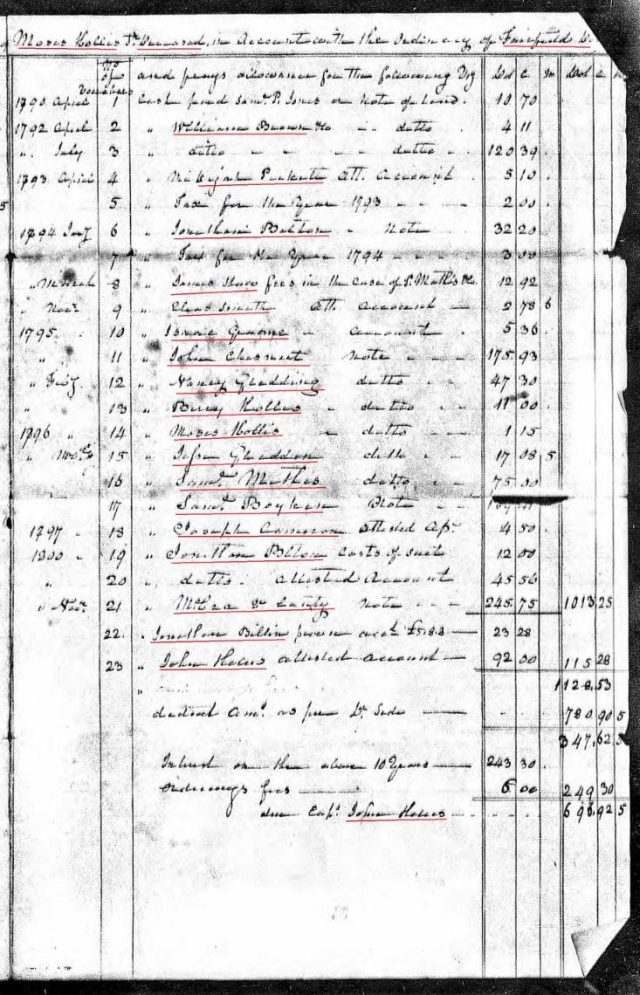 Moses Hollis Sr. Deceased, in Account with the Ordinary of Fairfield D.
No of Vouchers and prays allowance for the following Viz Dol c m Dol c m
1790 April 1 Cash paid Saml. P. Jones on Note of hand. 10 70
1792 April 2 " William Brown &c " " ditto 4 11
" July 3 " ditto ditto 120 39
1793 April 4 " Att. Account 5 10
5 " Tax for the Year 1793 2 00
1794 6 " Jonathan Note 32 20
7 " Tax for the Year 1794 3 00
" March 8 " James fees in the Case of 12 92
" Novr. 9 " Att. Account 2 78 6
1795 10 " Isaac account 5 36
" 11 " John Chesnut Note 175 93
" 12 " Nancy Gladding ditto 47 30
" 13 " Berry Hollis ditto 11 00
1796 " 14 " Moses Hollis ditto 1 15
" 15 " Jesse Gladden ditto 17 08 5
16 " Saml. Mathes ditto 75 00
17 " Saml. Boyken Note
1797 18 " Joseph Cameron attested 4 50
1800 19 " Costs of Suit 12 00
" 20 " ditto. attested Account 45 56
" Novr. 21 " Note 245.75 1013 25
22. " Jonathan proven 23 28
23 " John Hollis attested account 92 00 115 28
1128.53
deduct Amt. as per Dr. Side 780 90 5
347.62 5
Interest on the above 10 Years 243 30
Ordinarys fees 6 00 249 30
due Capt. John Hollis 596.92 5